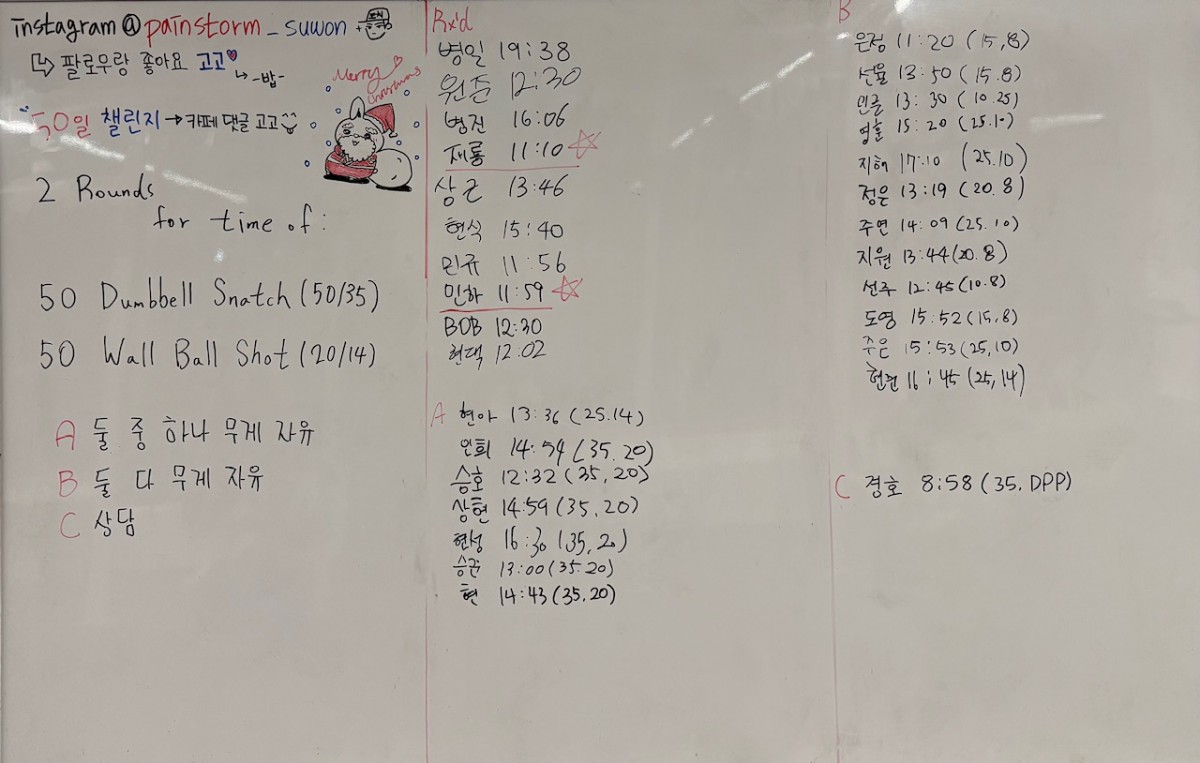 instagram@painstorm_suwon
↳ 팔로우랑 좋아요 고고♥
↳ -밥-
Merry Christmas
50일 챌린지 → 카페 댓글 고고
2 Rounds
for time of:
50 Dumbbell Snatch (50/35)
50 Wall Ball Shot (20/14)
A 둘 중 하나 무게 자유
B 둘 다 무게 자유
C 상담
Rx'd
병일 19:38
원준 12:30
병진 16:06
재룡 11:10 ☆
상근 13:46
현식 15:40
민규 11:56
민하 11:59 ☆
BOB 12:30
현택 12:02
A 현아 13:36 (25.14)
인희 14:54 (35.20)
승호 12:32 (35,20)
상현 14:59 (35.20)
현성 16:30 (35,20)
승균 13:00 (35.20)
현 14:43 (35.20)
B
은정 11:20 (15,8)
선율 13:50 (15.8)
13:30 (10.25)
15:20 (25.10)
지혜 17:10 (25.10)
정은 13:19 (20.8)
주연 14:09 (25.10)
지원 13:44 (20.8)
선주 12:45 (10.8)
도영 15:52 (15,8)
주은 15:53 (25,10)
현준 16:45 (25,14)
C 경호 8:58 (35. DPP)